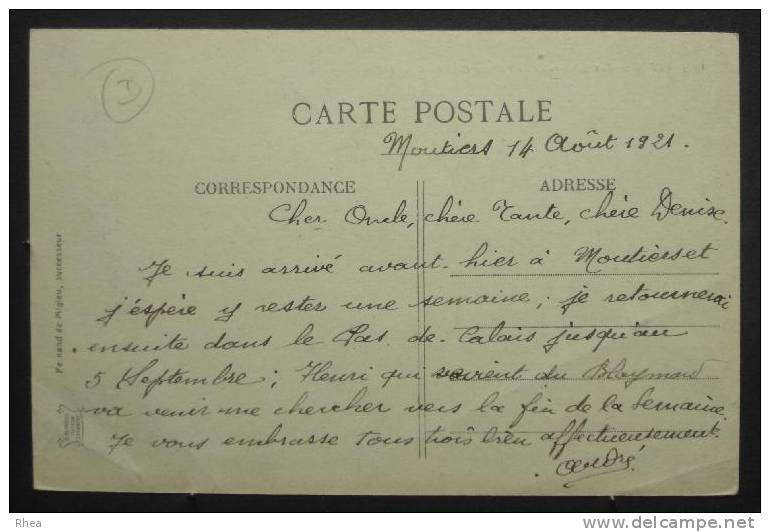 CARTE POSTALE
Moutiers 14 Août 1921.
CORRESPONDANCE
ADRESSE
Cher Oncle, chère Tante, chère Denise.
Je suis arrivé avant-hier à Moutiers et
j'espère y rester une semaine; je retournerai
ensuite dans le Pas-de-Calais jusqu'au
5 Septembre; Henri qui revient du
va venir me chercher vers la fin de la Semaine.
Je vous embrasse tous trois bien affectueusement.
André
successeur
Rhea
www.delcampe.net